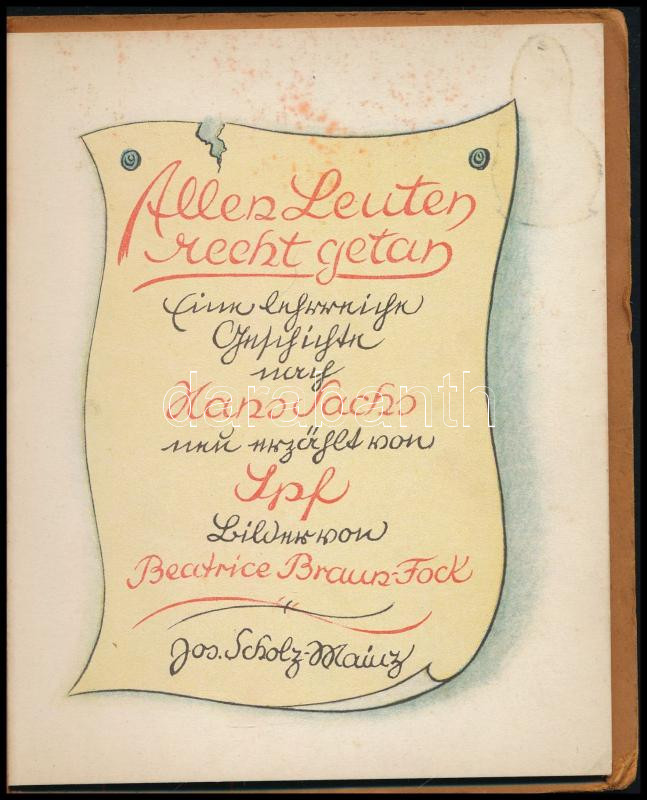 Allen Leuten
recht getan
Eine lehrreiche
Geschichte
nach
Hans Sachs
darabanth
neu erzählt von
Ipf
Bilder von
Beatrice Braun-Fock
Jos. Scholz-Mainz